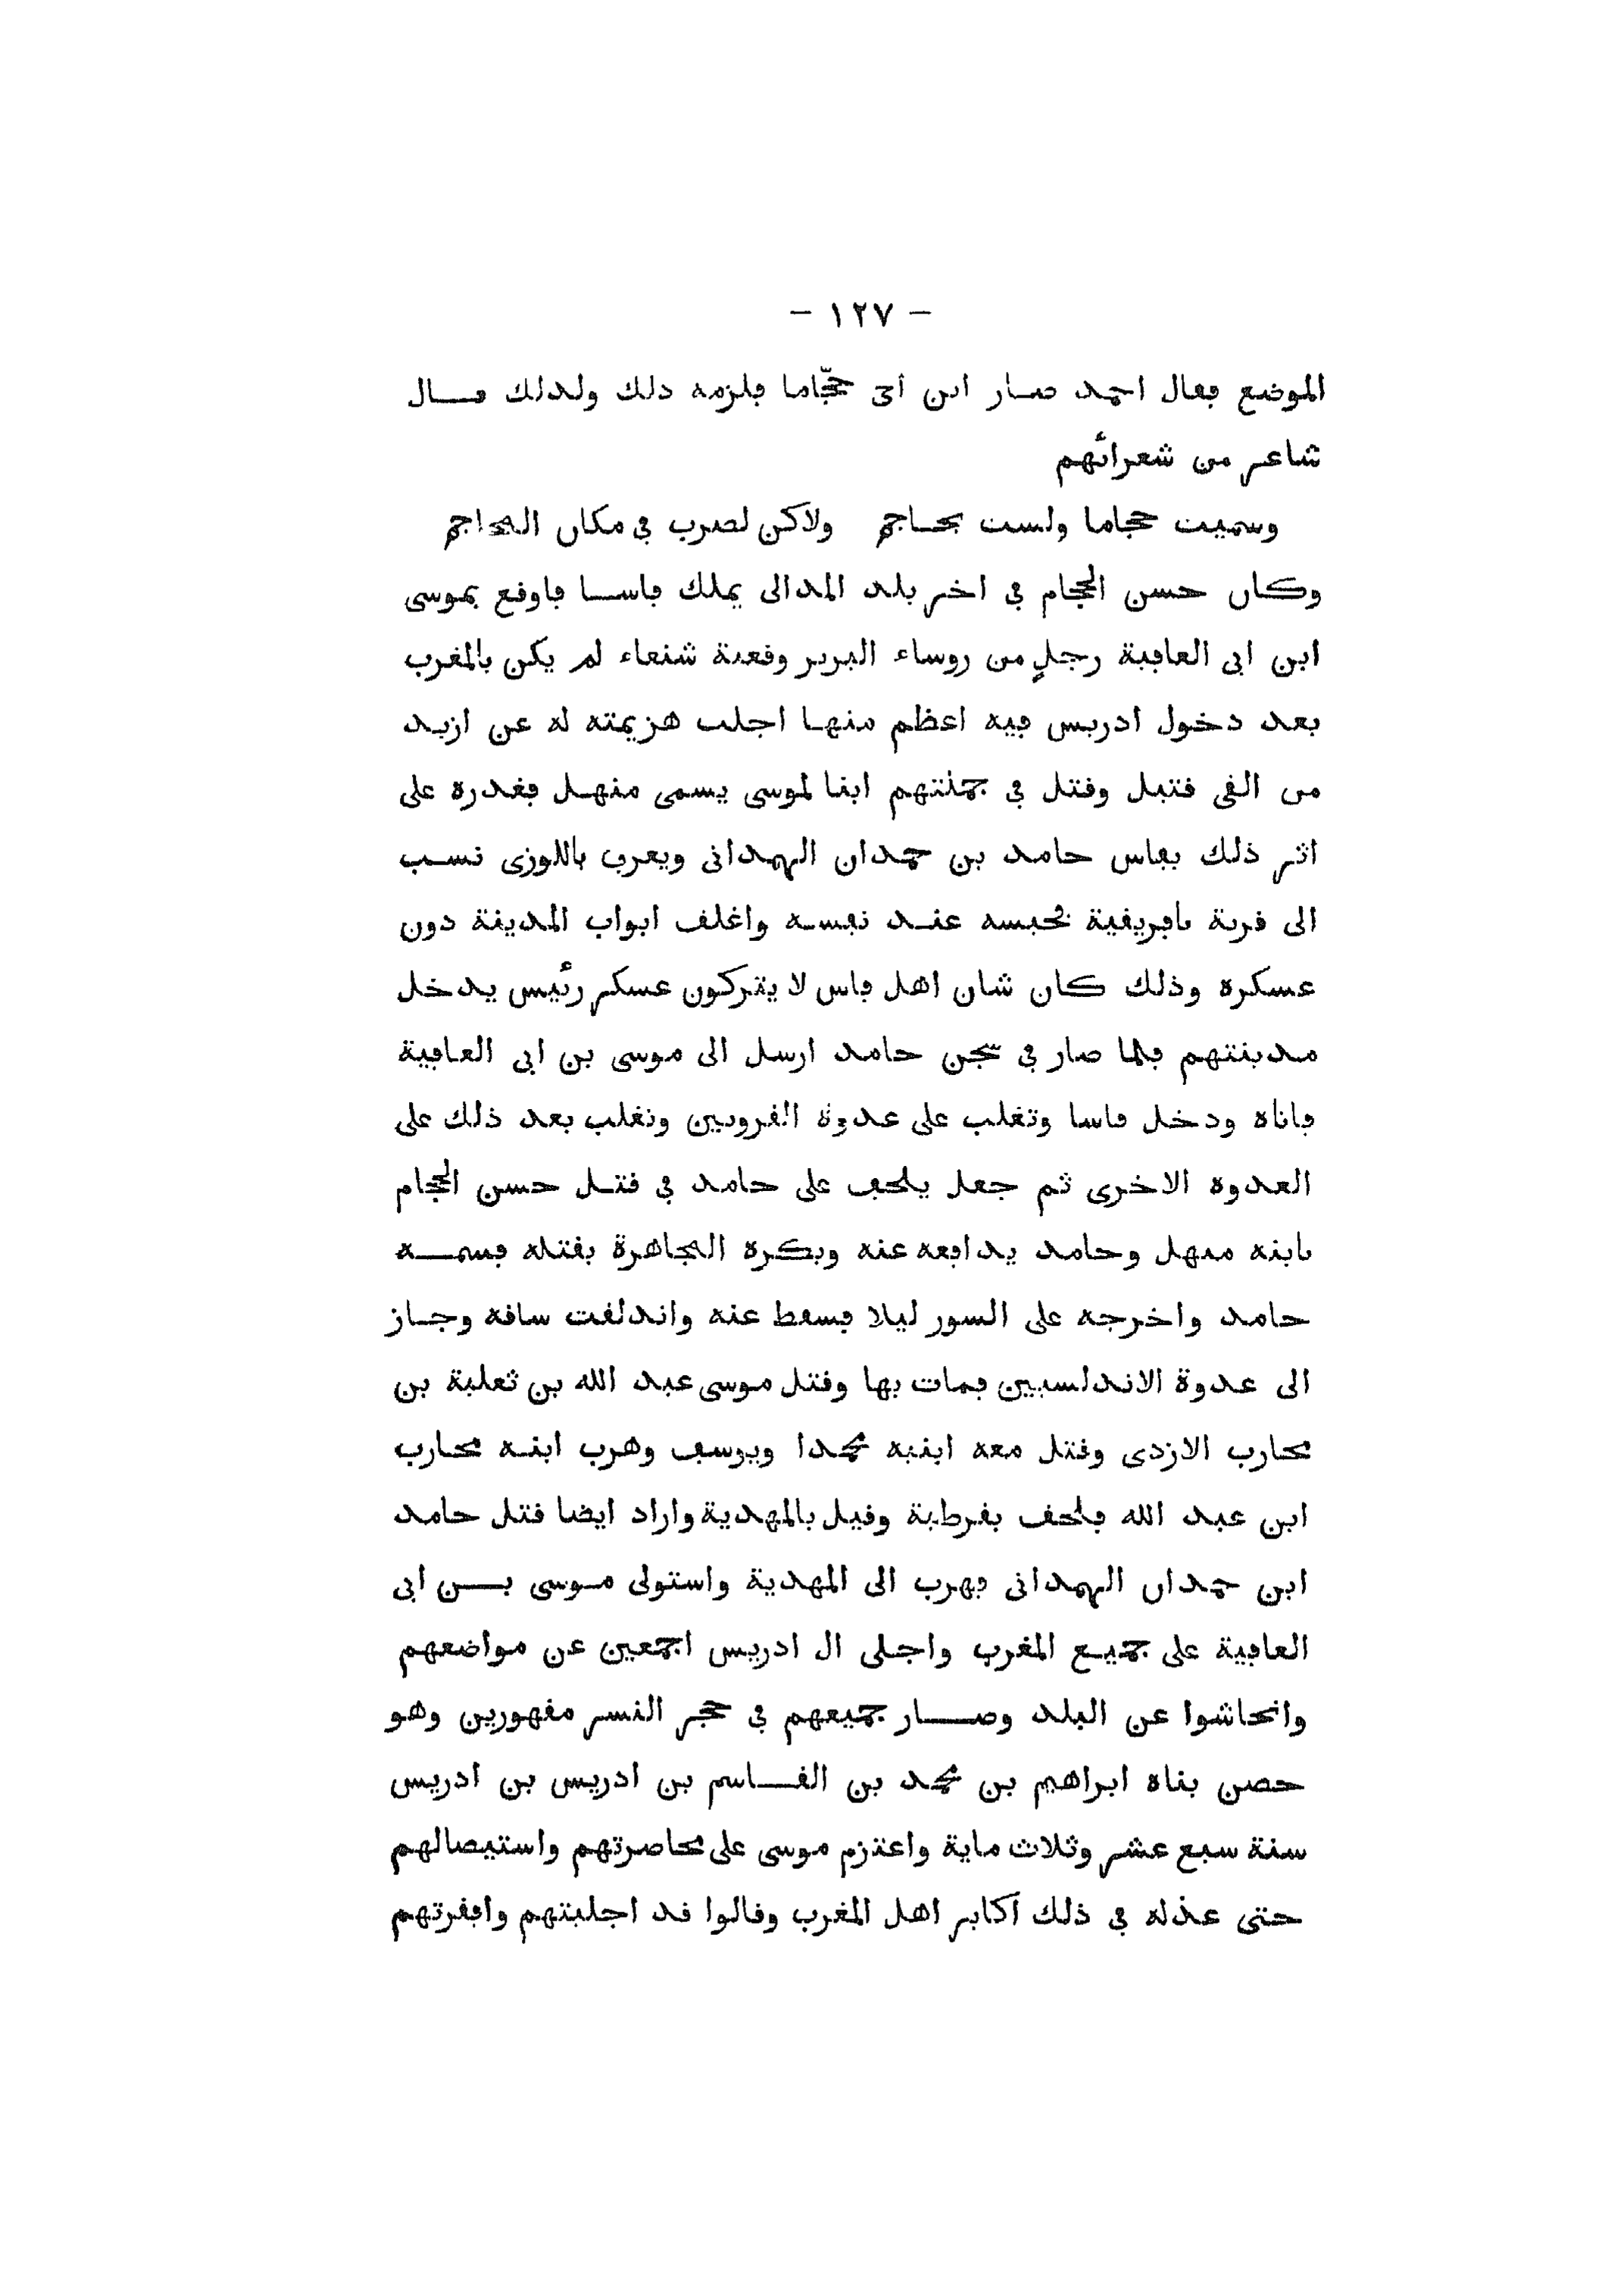 - ١٢٧ -
الموضع فقال احمد صار ابن اخى حجّاما فلزمه ذلك ولذلك قال
شاعر من شعرائهم
وسميت حجاما ولست بحاجم ولاكن لضرب في مكان المحاجم
وكان حسن الحجام في اخر بلد المدالى يملك فاسا فاوقع بموسى
ابن ابى العافية رجلٍ من روساء البربر وقعة شنعاء لم يكن بالمغرب
بعد دخول ادريس فيه اعظم منها اجلت هزيمته له عن ازيد
من الفى قتيل وقتل في جملتهم ابنا لموسى يسمى منهل فغدره على
اثر ذلك بفاس حامد بن حمدان الهمدانى ويعرف باللوزى نسب
الى قرية بافريقية فحبسه عند نفسه واغلق ابواب المدينة دون
عسكره وذلك كان شان اهل فاس لا يتركون عسكر رئيس يدخل
مدينتهم فلما صار في سجن حامد ارسل الى موسى بن ابى العافية
فاتاه ودخل فاسا وتغلب على عدوة القرويين وتغلب بعد ذلك على
العدوة الاخرى ثم جعل يلحف على حامد في قتل حسن الحجام
بابنه منهل وحامد يدافعه عنه ويكره المجاهرة بقتله فسمه
حامد واخرجه على السور ليلا فسقط عنه واندلقت ساقه وجاز
الى عدوة الاندلسيين فمات بها وقتل موسى عبد الله بن ثعلبة بن
محارب الازدى وقتل معه ابنيه محمدا ويوسف وهرب ابنه محارب
ابن عبد الله فلحق بقرطبة وقيل بالمهدية واراد ايضا قتل حامد
ابن حمدان الهمدانى فهرب الى المهدية واستولى موسى بن ابى
العافية على جميع المغرب واجلى ال ادريس اجمعين عن مواضعهم
وانحاشوا عن البلد وصار جميعهم في حجر النسر مقهورين وهو
حصن بناه ابراهيم بن محمد بن القاسم بن ادريس بن ادريس
سنة سبع عشر وثلاث ماية واعتزم موسى على محاصرتهم واستيصالهم
حتى عذله في ذلك اكابر اهل المغرب وقالوا قد اجليتهم وافقرتهم